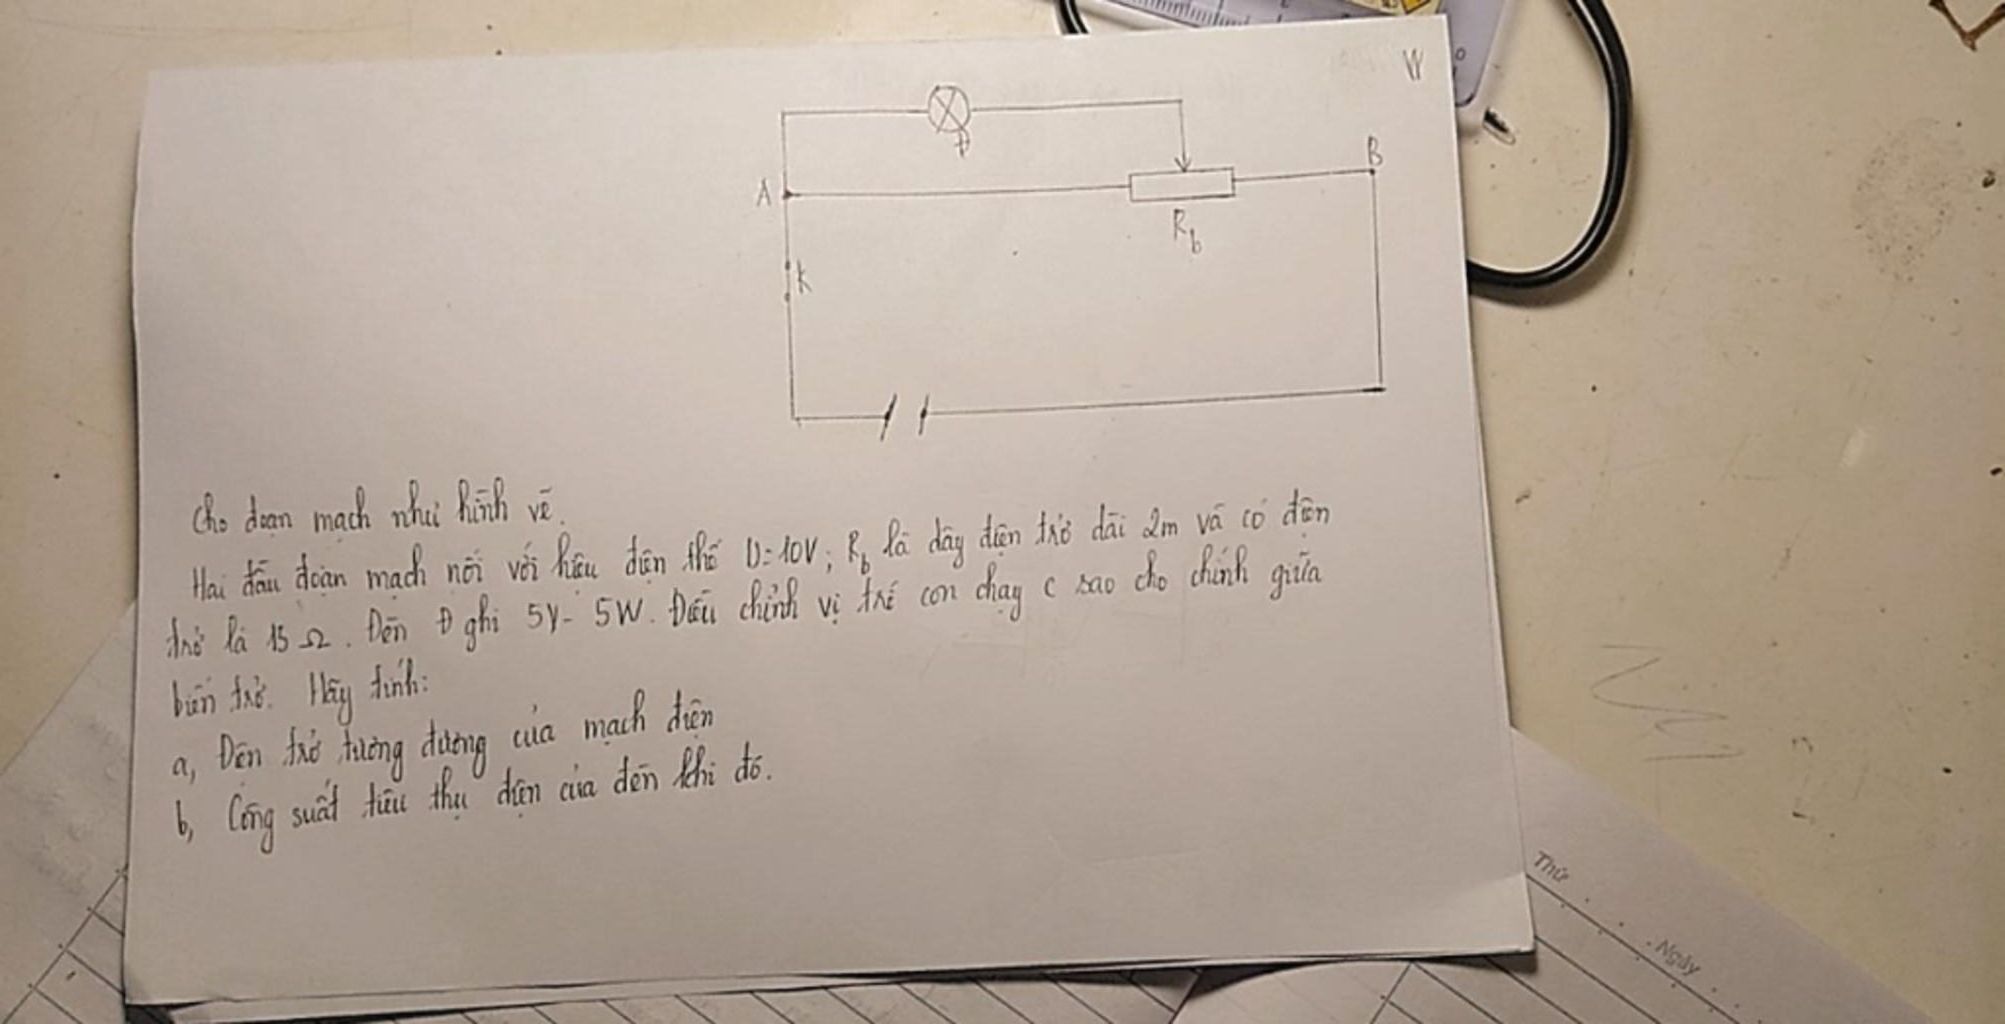 W
Đ
A
B
R_b
K
Cho đoạn mạch như hình vẽ.
Hai đầu đoạn mạch nối với hiệu điện thế U=10V; R_b là dây điện trở dài 2m và có điện
trở là 15 Ω. Đèn Đ ghi 5V- 5W. Điều chỉnh vị trí con chạy C sao cho chính giữa
biến trở. Hãy tính:
a, Điện trở tương đương của mạch điện
b, Công suất tiêu thụ điện của đèn khi đó.
Thứ
Ngày